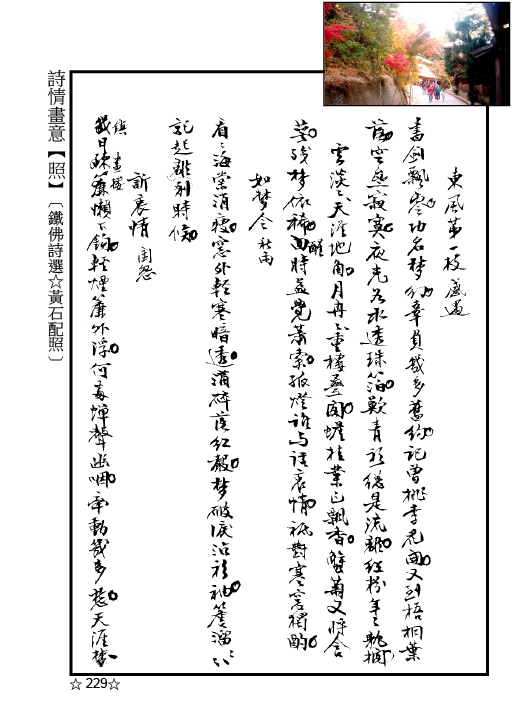 詩情畫意【照】〔鐵佛詩選☆黃石配照〕
東風第一枝 感遇
書劍飄零功名夢幻辜負幾多舊約記曾桃李花開又到梧桐葉
落空無寂寞夜光如水透珠箔歎青衫總是流離紅粉年年
雲淡淡天涯地角月冉冉重樓疊閣蟾桂葉已飄香蟹菊又將含
萼殘夢依稀醒時益覺蕭索孤燈誰与話衷情祇對寒窗獨酌
如夢令 秋雨
看看海棠消瘦窓外輕寒暗透滴碎落紅聲夢破淚沾衫袖簷溜
記起離別時候
訴衷情 閨怨
鎮日珠簾懶下鉤輕煙簾外浮何處蟬聲幽咽牽動幾多愁天涯
畫樓
☆ 229☆